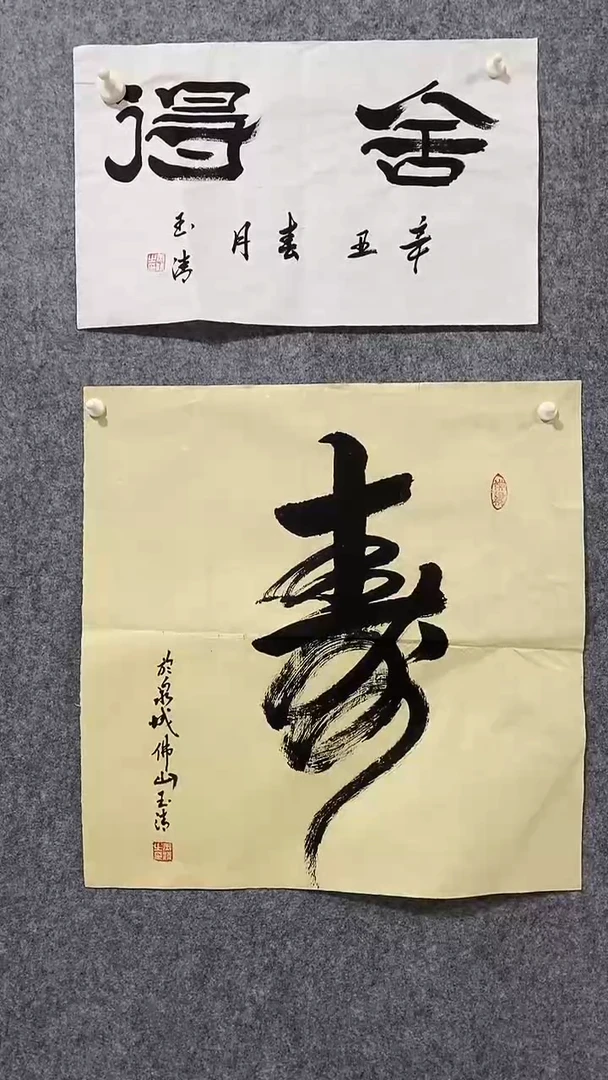 舍得
辛丑春月
玉清
寿
於泉城佛山玉清